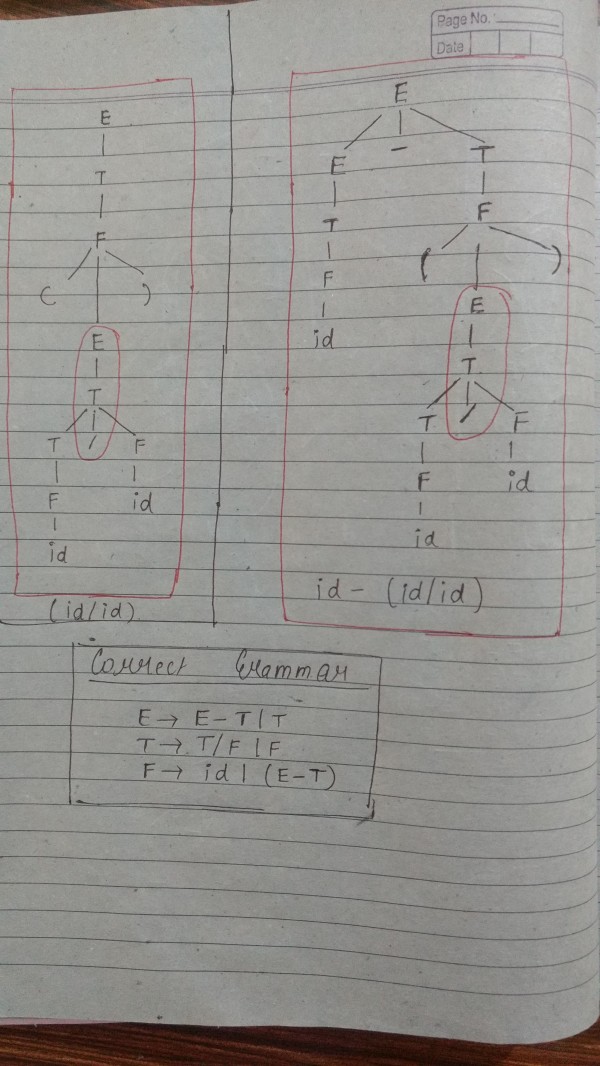 Page No.:
Date
E
T
F
( )
E
T
T / F
F id
id
(id/id)
E
E - T
T F
F ( )
id E
T
T / F
F id
id
id - (id/id)
Correct Grammar
E → E - T | T
T → T/F | F
F → id | (E-T)